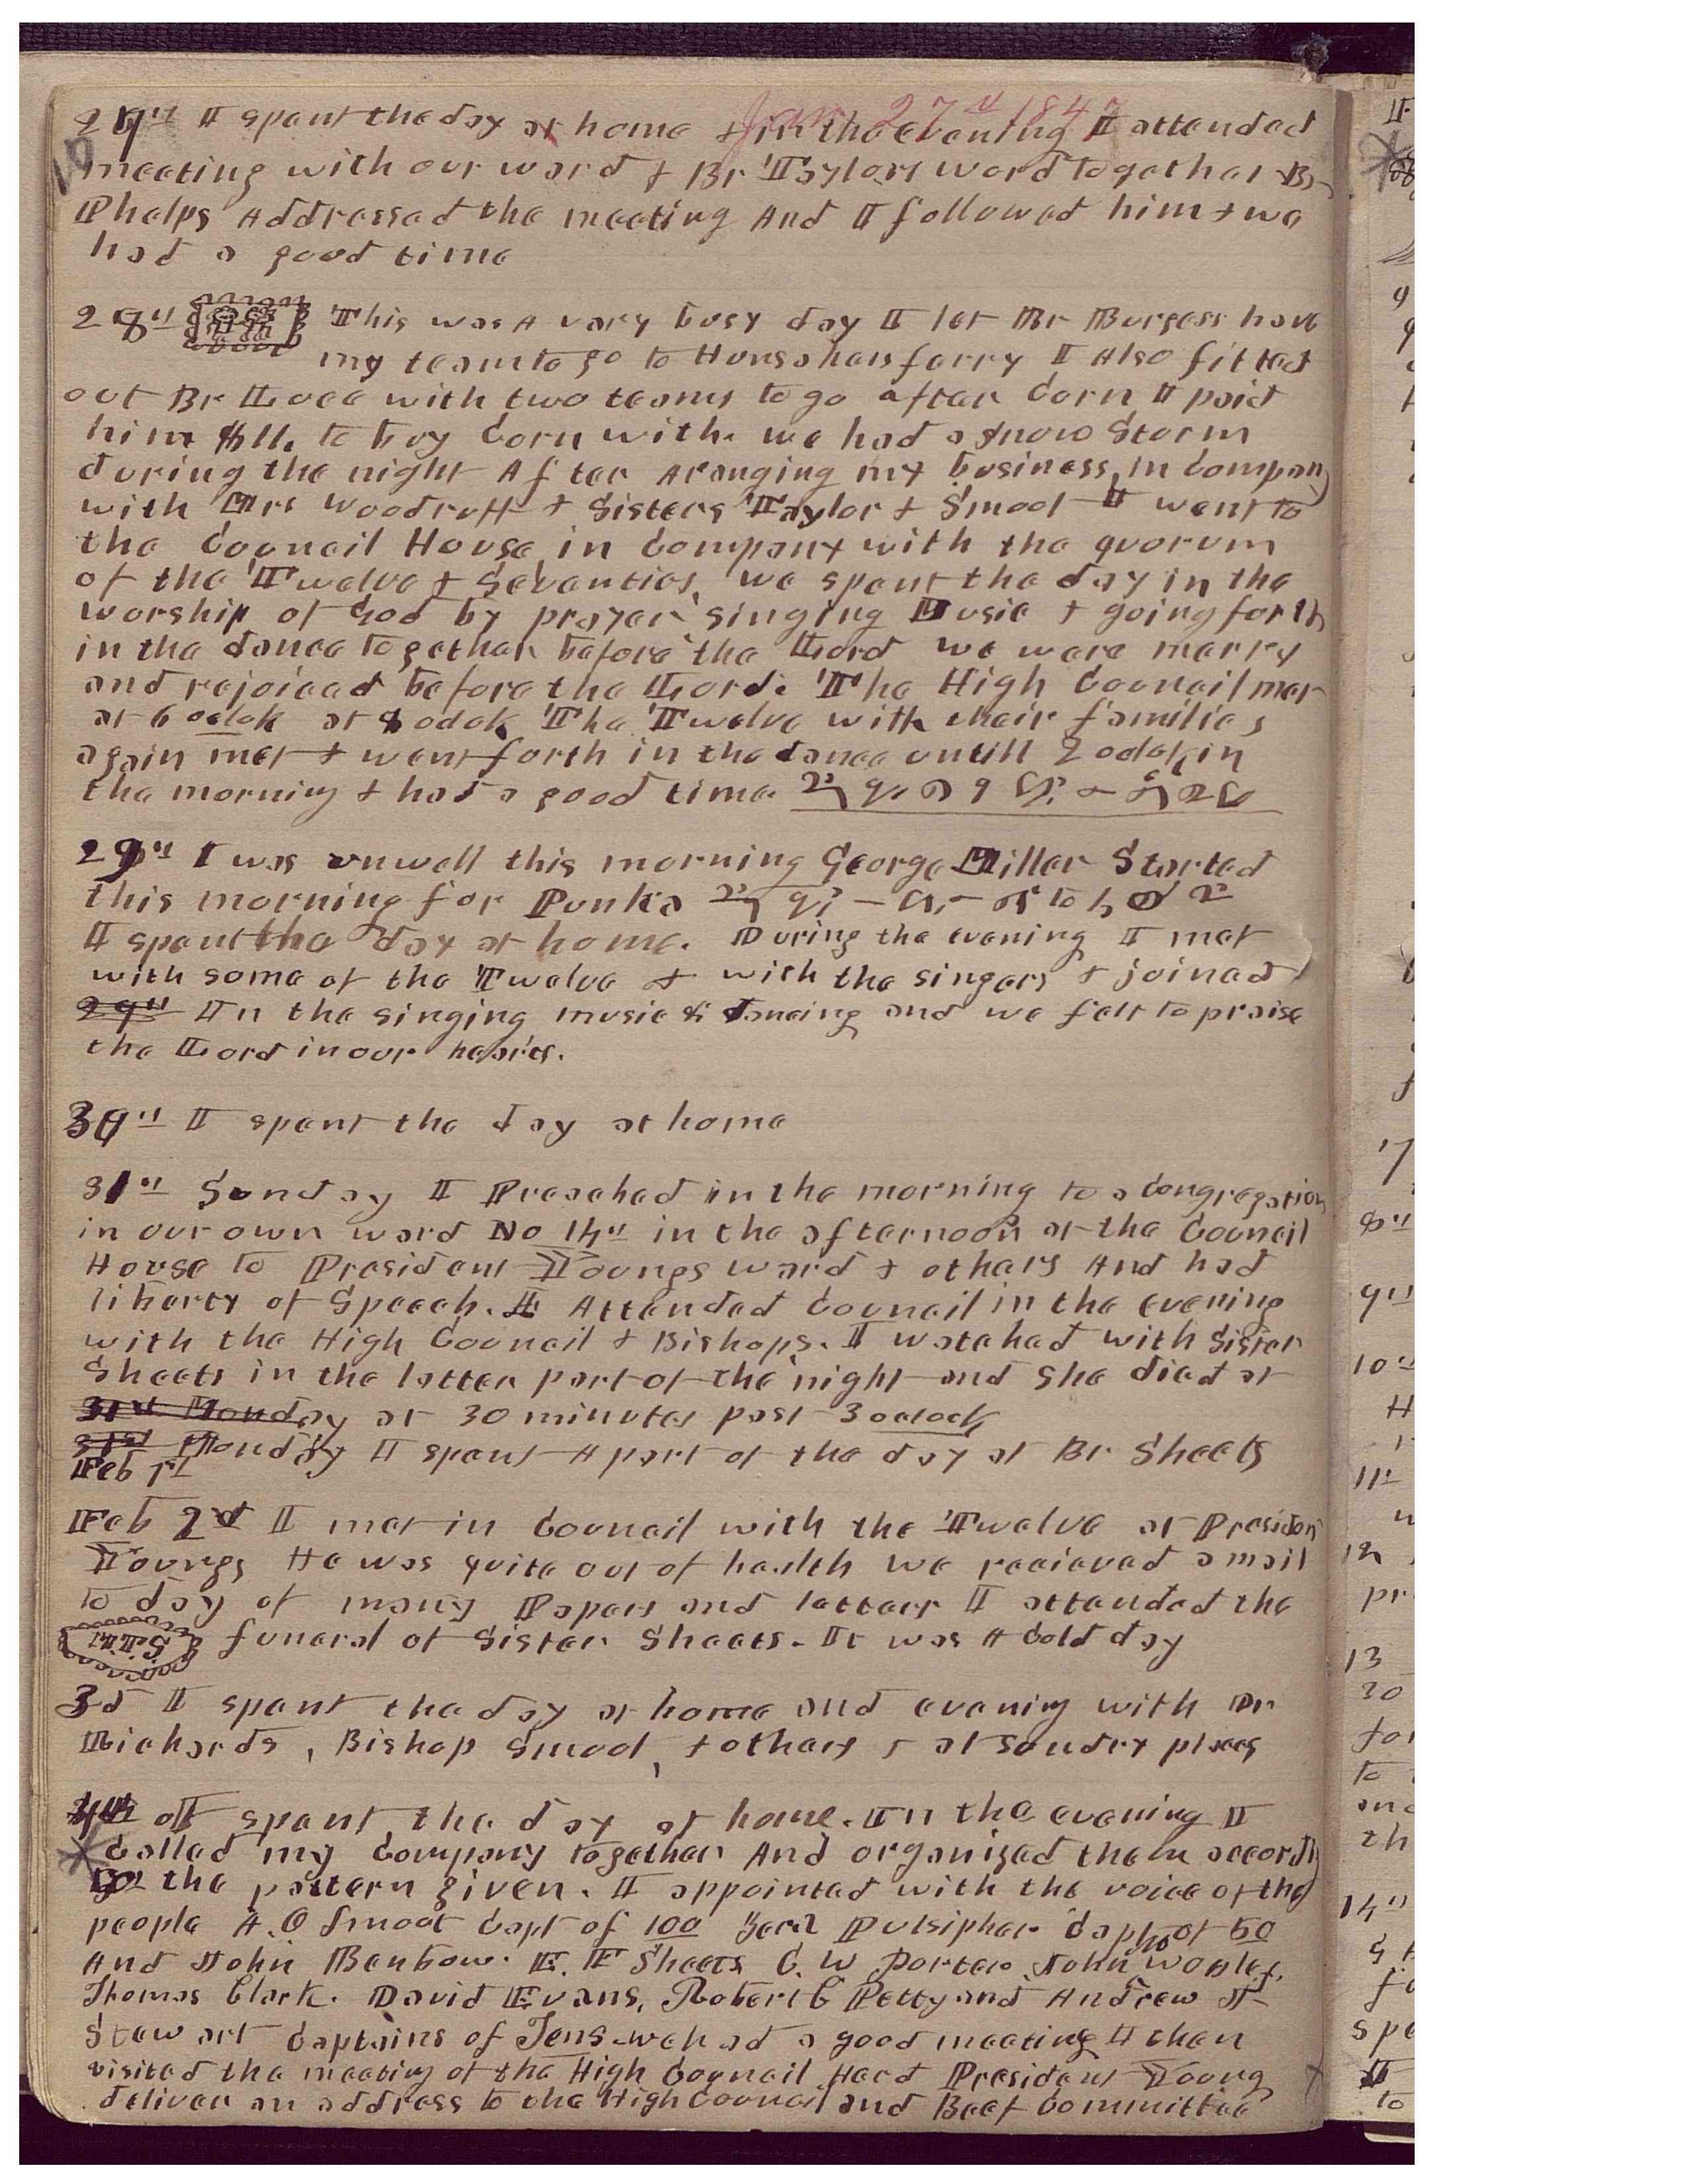 Jan 27th 1847
27th I spent the day at home & in the evening I attended
meeting with our ward & Br Taylors ward together Br
Phelps Addressed the meeting And I followed him & we
had a good time
28th This was A vary busy day I let Br Burgess have
my team to go to ferry I Also fitted
out Br with two teams to go after Corn I paid
him to buy Corn with. we had a snow Storm
during the night After Aranging my business, in Company
with Mrs Woodruff & Sisters Taylor & Smoot I went to
the Council House in Company with the quorum
of the Twelve & Seventies, we spent the day in the
worship of God by prayer singing Music & going forth
in the dance together before the Lord we were merry
and rejoiced before the Lord. The High Council met
at 6 oclok at 8 oclok The Twelve with their families
again met & went forth in the dance untill 2 oclok in
the morning & had a good time
29th I was unwell this morning George Miller Started
this morning for Punka to
I spent the day at home. During the evening I met
with some of the Twelve & with the singers & joined
29th In the singing music & dancing and we felt to praise
the Lord in our hearts.
30th I spent the day at home
31st Sunday I Preached in the morning to a Congregation
in our own ward No 14th in the afternoon at the Council
House to President Youngs ward & others And had
liberty of Speech. I Attended Council in the evening
with the High Council & Bishops. I watched with Sister
Sheets in the latter part of the night and She died at
31st Monday at 30 minutes past 3 oclock
31st Monday I spent A part of the day at Br Sheets
Feb 1st
Feb 2d I met in Council with the Twelve at President
Youngs He was quite out of health we recieved a mail
to day of many Papers and letters I attended the
funeral of Sister Sheets. It was A Cold day
3d I spent the day at home and evening with Dr
Richards, Bishop Smoot, & others & at sundry places
4th I spent the day at home. In the evening I
Called my Company together And organized them accordg
to the pattern given. I appointed with the voice of the
people A. O Smoot Capt of 100 Zera Pulsipher Capt of 50
And John Benbow. E. F Sheets C. W Porter John
Thomas Clark. David Evans, Robert C Petty and Andrew J
Stewart Captains of Tens we had a good meeting I then
visited the meeting of the High Council Heard President Young
deliver an address to the High Council and Beef Committee